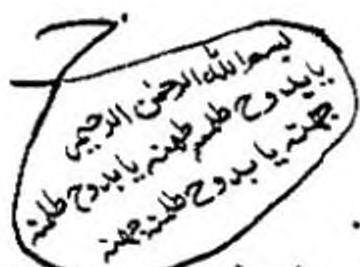 بسم الله الرحمن الرحيم
يا بدوح طلسه طهنه يا بدوح طلنه
جهنه يا بدوح طلنه جهنه